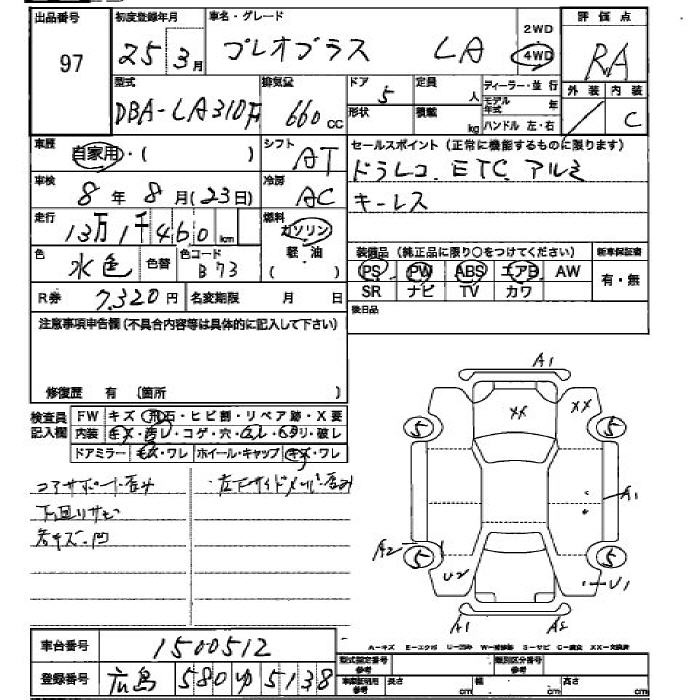 出品番号 初度登録年月 車名・グレード 2WD 評価点
97 25 3月 プレオプラス LA 4WD RA
型式 排気量 ドア 5 定員 人 ディーラー・並行 外装 内装
DBA-LA310F 660cc 形状 積載 kg モデル年式 年 ハンドル 左・右 C
車歴 自家用・( ) シフト AT セールスポイント(正常に機能するものに限ります)
車検 8年8月(23日) 冷房 AC ドラレコ ETC アルミ
走行 13万1千460km 燃料 ガソリン キーレス
軽油 ( )
色 水色 色替 色コード B73 装備品(純正品に限り○をつけてください) 新車保証書
PS PW ABS エアB AW 有・無
R券 7,320円 名変期限 月 日 SR ナビ TV カワ
注意事項申告欄(不具合内容等は具体的に記入して下さい) 後日品
修復歴 有 〔箇所 〕
検査員記入欄 FW キズ・飛石・ヒビ割・リペア跡・X要
内装 キズ・汚レ・コゲ・穴・スレ・ヘタリ・破レ
ドアミラー キズ・ワレ ホイール・キャップ キズ・ワレ
コアサポート歪み ・左右サイドメンバー歪み
下回りサビ
各キズ・凹
A1
XX XX
5 5
A1
A2 5 5
U2 U1
A1 A2
車台番号 1500512
A-キズ E-エクボ U-凹み W-補修跡 S-サビ C-腐食 XX-交換済
登録番号 広島 580 ゆ 5138
型式指定番号 参考 類別区分番号 参考
車庫証明用 参考 長さ cm 幅 cm 高さ cm